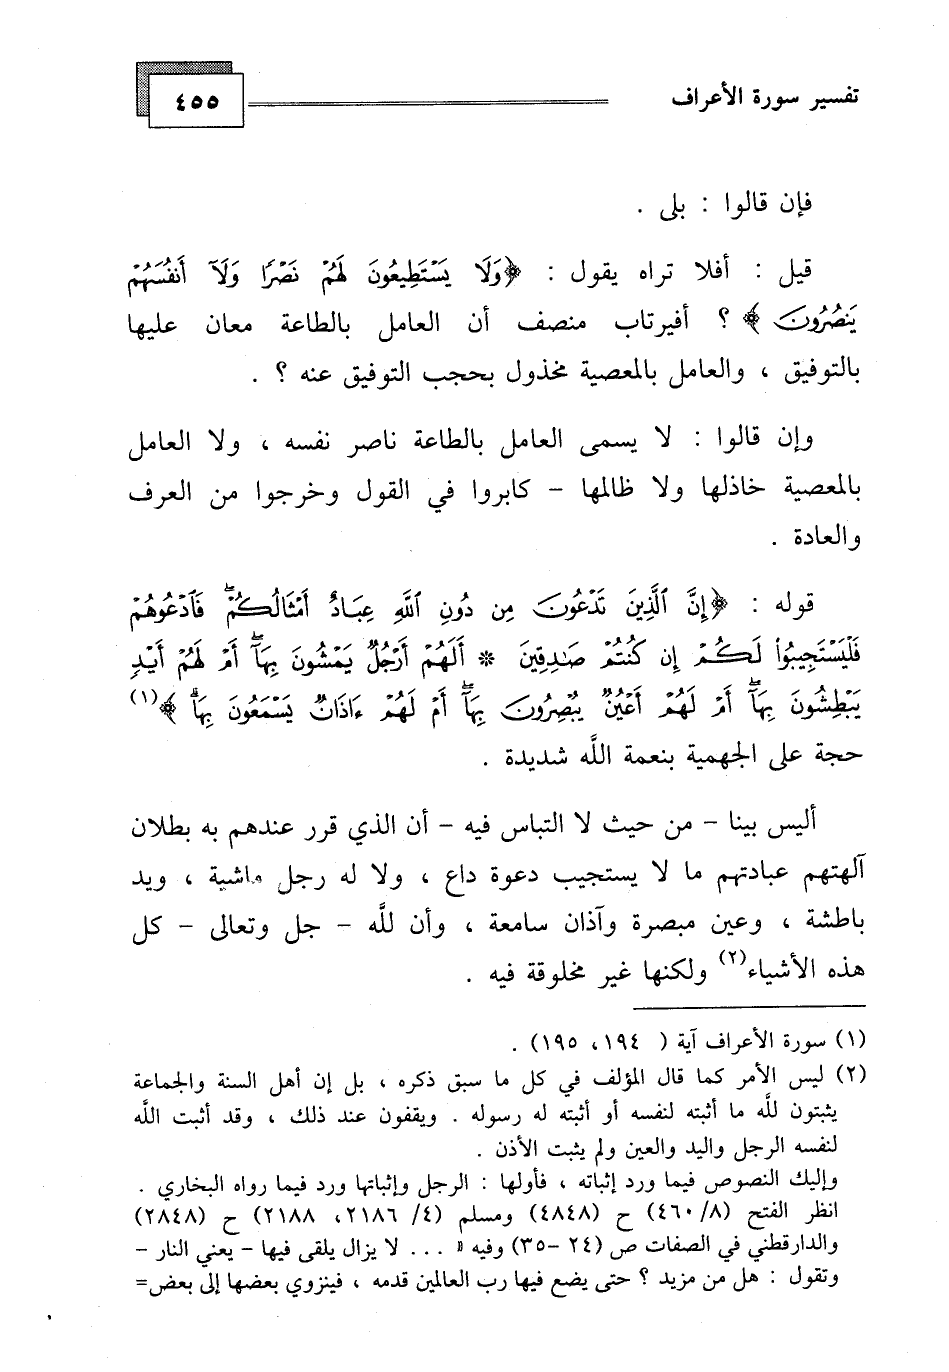 تفسير سورة الأعراف
٤٥٥
فإن قالوا : بلى .
قيل : أفلا تراه يقول : ﴿وَلَا يَسْتَطِيعُونَ لَهُمْ نَصْرًا وَلَآ أَنفُسَهُمْ
يَنصُرُونَ ﴾ ؟ أفيرتاب منصف أن العامل بالطاعة معان عليها
بالتوفيق ، والعامل بالمعصية مخذول بحجب التوفيق عنه ؟ .
وإن قالوا : لا يسمى العامل بالطاعة ناصر نفسه ، ولا العامل
بالمعصية خاذلها ولا ظالمها – كابروا في القول وخرجوا من العرف
والعادة .
قوله : ﴿إِنَّ ٱلَّذِينَ تَدْعُونَ مِن دُونِ ٱللَّهِ عِبَادٌ أَمْثَالُكُمْۖ فَٱدْعُوهُمْ
فَلْيَسْتَجِيبُوا۟ لَكُمْ إِن كُنتُمْ صَـٰدِقِينَ * أَلَهُمْ أَرْجُلٌ يَمْشُونَ بِهَآۖ أَمْ لَهُمْ أَيْدٍ
يَبْطِشُونَ بِهَآۖ أَمْ لَهُمْ أَعْيُنٌ يُبْصِرُونَ بِهَآۖ أَمْ لَهُمْ ءَاذَانٌ يَسْمَعُونَ بِهَاۗ ﴾(١)
حجة على الجهمية بنعمة اللَّه شديدة .
أليس بينا – من حيث لا التباس فيه – أن الذي قرر عندهم به بطلان
آلهتهم عبادتهم ما لا يستجيب دعوة داع ، ولا له رجل ماشية ، ويد
باطشة ، وعين مبصرة وآذان سامعة ، وأن للَّه – جل وتعالى – كل
هذه الأشياء(٢) ولكنها غير مخلوقة فيه .
(١) سورة الأعراف آية ( ١٩٤، ١٩٥) .
(٢) ليس الأمر كما قال المؤلف في كل ما سبق ذكره ، بل إن أهل السنة والجماعة
يثبتون للَّه ما أثبته لنفسه أو أثبته له رسوله . ويقفون عند ذلك ، وقد أثبت اللَّه
لنفسه الرجل واليد والعين ولم يثبت الأذن .
وإليك النصوص فيما ورد إثباته ، فأولها : الرجل وإثباتها ورد فيما رواه البخاري .
انظر الفتح (٨/ ٤٦٠) ح (٤٨٤٨) ومسلم (٤/ ٢١٨٦، ٢١٨٨) ح (٢٨٤٨)
والدارقطني في الصفات ص (٢٤ –٣٥) وفيه « ... لا يزال يلقى فيها – يعني النار –
وتقول : هل من مزيد ؟ حتى يضع فيها رب العالمين قدمه ، فينزوي بعضها إلى بعض=